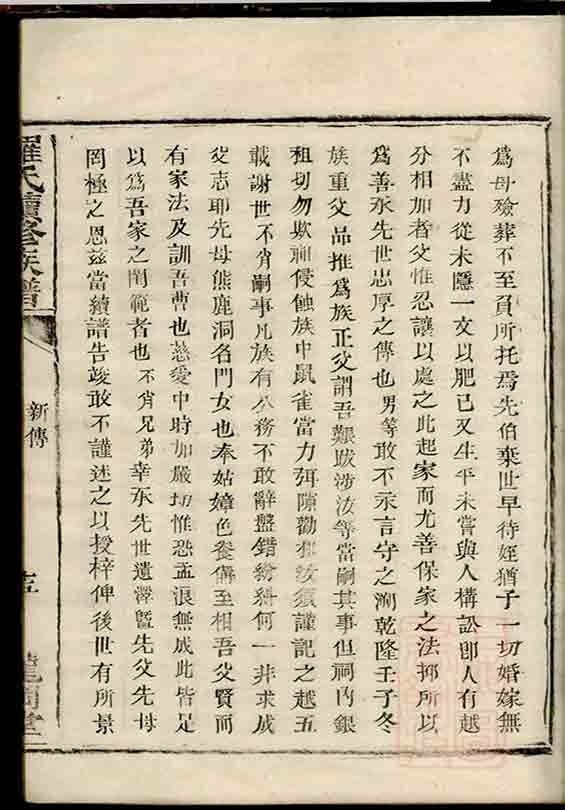 爲母殮葬不至負所托焉先伯棄世早待姪猶子一切婚嫁無
不盡力從未隱一文以肥己又生平未嘗與人構訟卽人有越
分相加者父惟忍讓以處之此起家而尤善保家之法抑所以
爲善承先世忠厚之傳也男等敢不永言守之溯乾隆壬子冬
族重父品推爲族正父謂吾艱跋涉汝等當嗣其事但祠內銀
租切勿欺祖侵蝕族中鼠雀當力弭隙勸和汝須謹記之越五
載謝世不肖嗣事凡族有公務不敢辭盤錯紛糾何一非求成
父志耶先母熊鹿洞名門女也奉姑嫜色養備至相吾父賢而
有家法及訓吾曹也慈愛中時加嚴切惟恐孟浪無成此皆足
以爲吾家之閫範者也不肖兄弟幸承先世遺澤曁先父先母
罔極之恩茲當續譜告竣敢不謹述之以授梓俾後世有所景
羅氏續修族譜
新傳